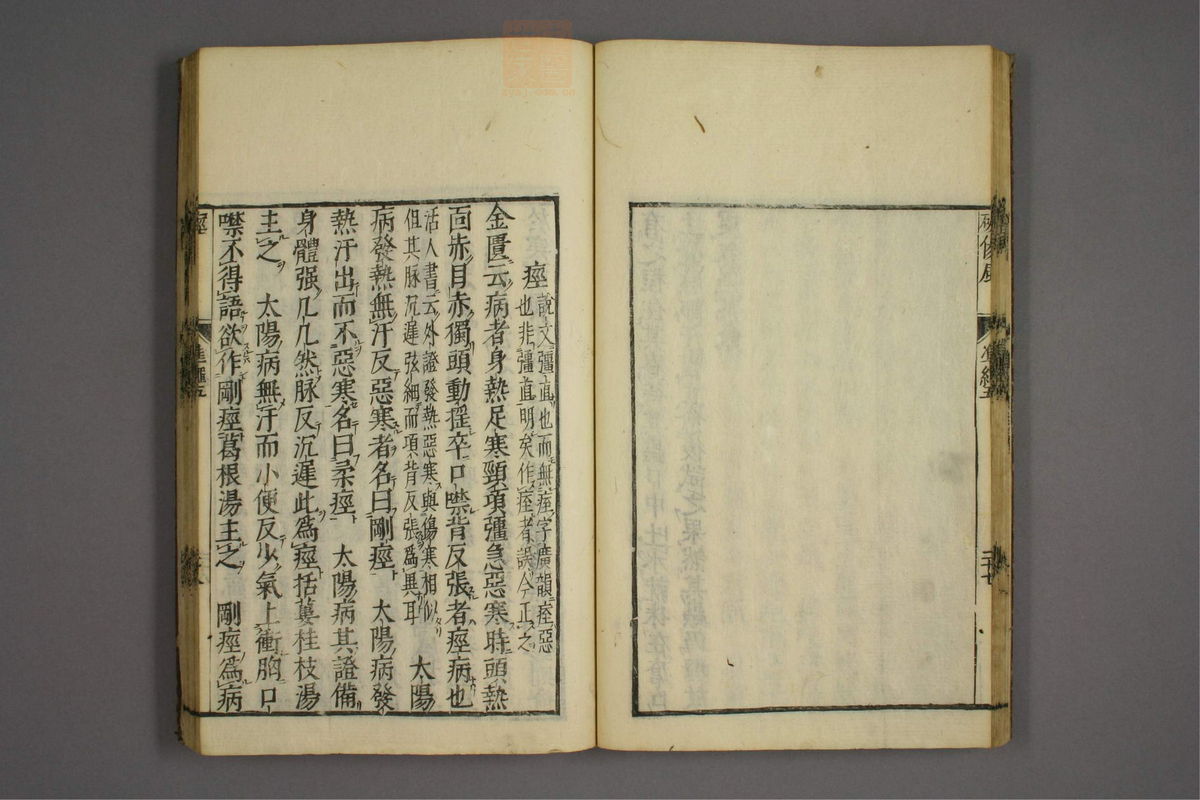 痙 說文彊直也而無痓字廣韻痓惡
也非彊直明矣作痓者誤今正之
金匱云病者身熱足寒頸項彊急惡寒時頭熱
面赤目赤獨頭動搖卒口噤背反張者痙病也
活人書云外證發熱惡寒與傷寒相似
但其脉沉遲弦細而項背反張爲異耳 太陽
病發熱無汗反惡寒者名曰剛痙 太陽病發
熱汗出而不惡寒名曰柔痙 太陽病其證備
身體强几几然脉反沉遲此爲痙括蔞桂枝湯
主之 太陽病無汗而小便反少氣上衝胸口
噤不得語欲作剛痙葛根湯主之 剛痙爲病
痙